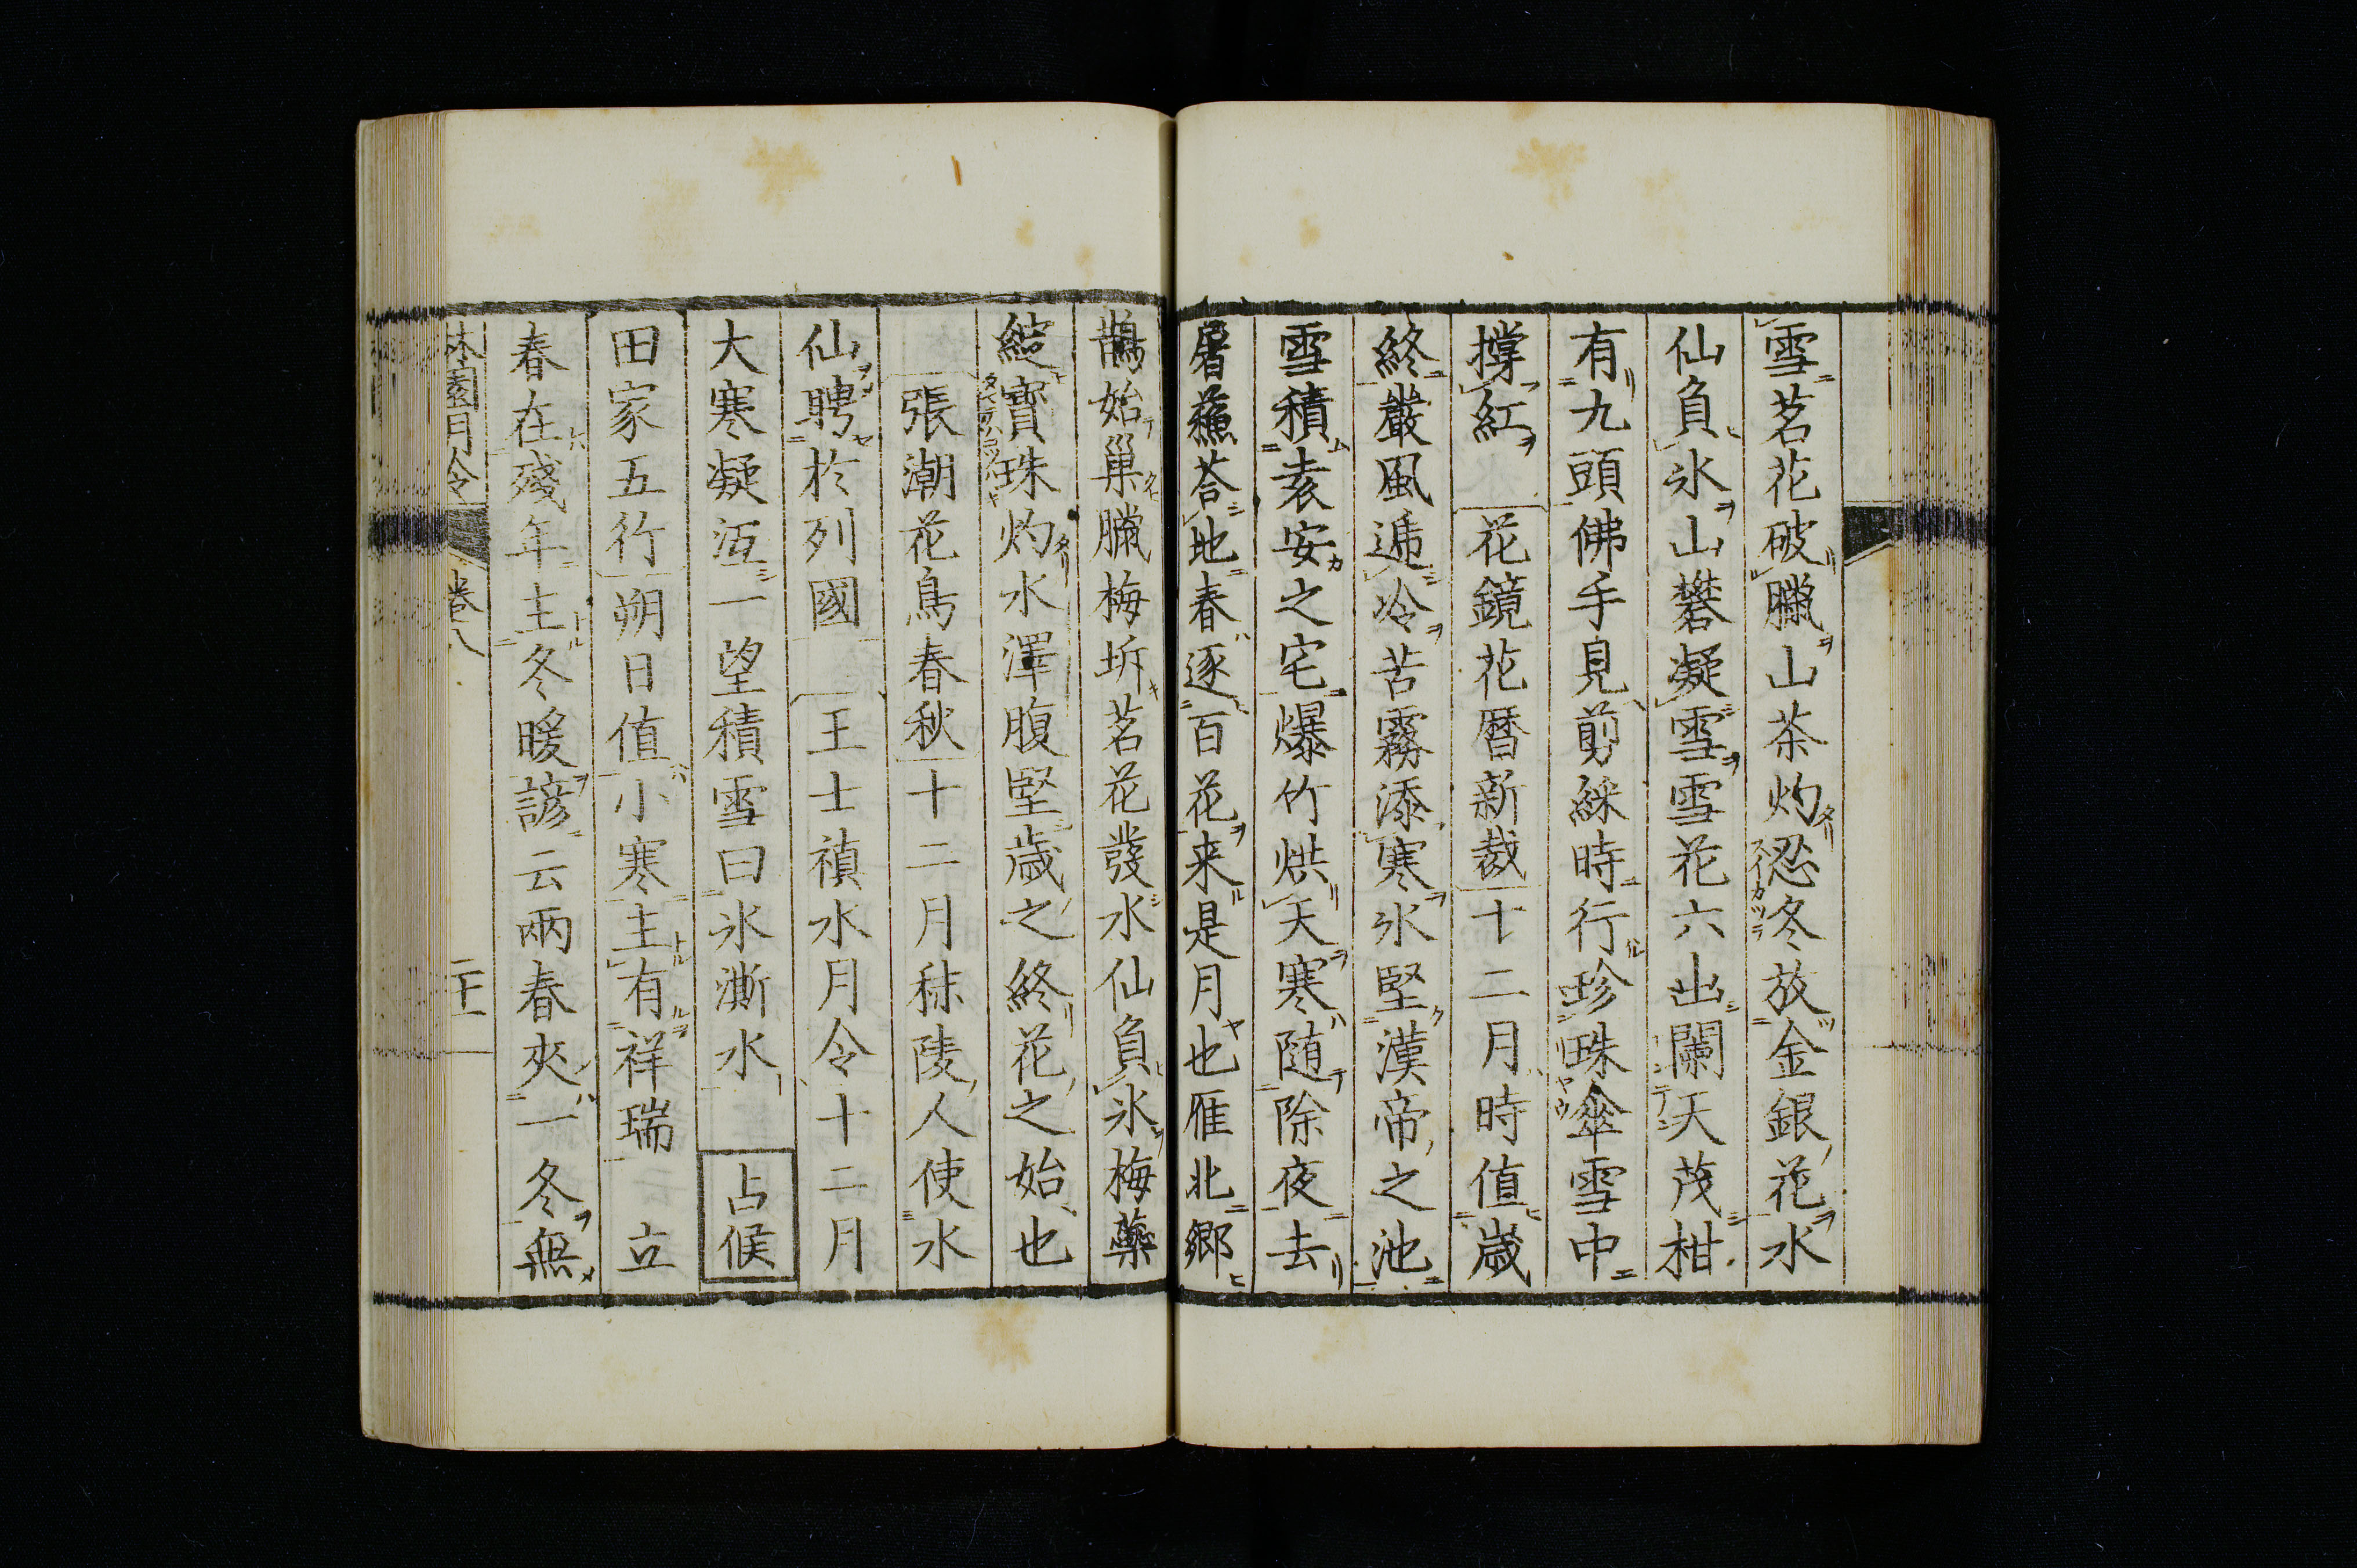 雪茗花破臘山茶灼忍冬放金銀花水
仙負氷山礬凝雪雪花六出闌天茂柑
有九頭佛手見剪綵時行珍珠傘雪中
撐紅 花鏡花暦新裁十二月時值歳
終嚴風遞冷苦霧添寒氷堅漢帝之池
雪積袁安之宅爆竹烘天寒随除夜去
屠蘓荅地春逐百花来是月也雁北郷
鵲始巢臘梅坼茗花發水仙負氷梅蘂
綻寳珠灼水澤腹堅歳之終花之始也
張潮花鳥春秋十二月秣陵人使水
仙聘於列國 王士禛水月令十二月
大寒凝沍一望積雪曰氷澌水 占候
田家五行朔日值小寒主有祥瑞 立
春在殘年主冬暖諺云兩春夾一冬無
林園月令 卷八 二十一